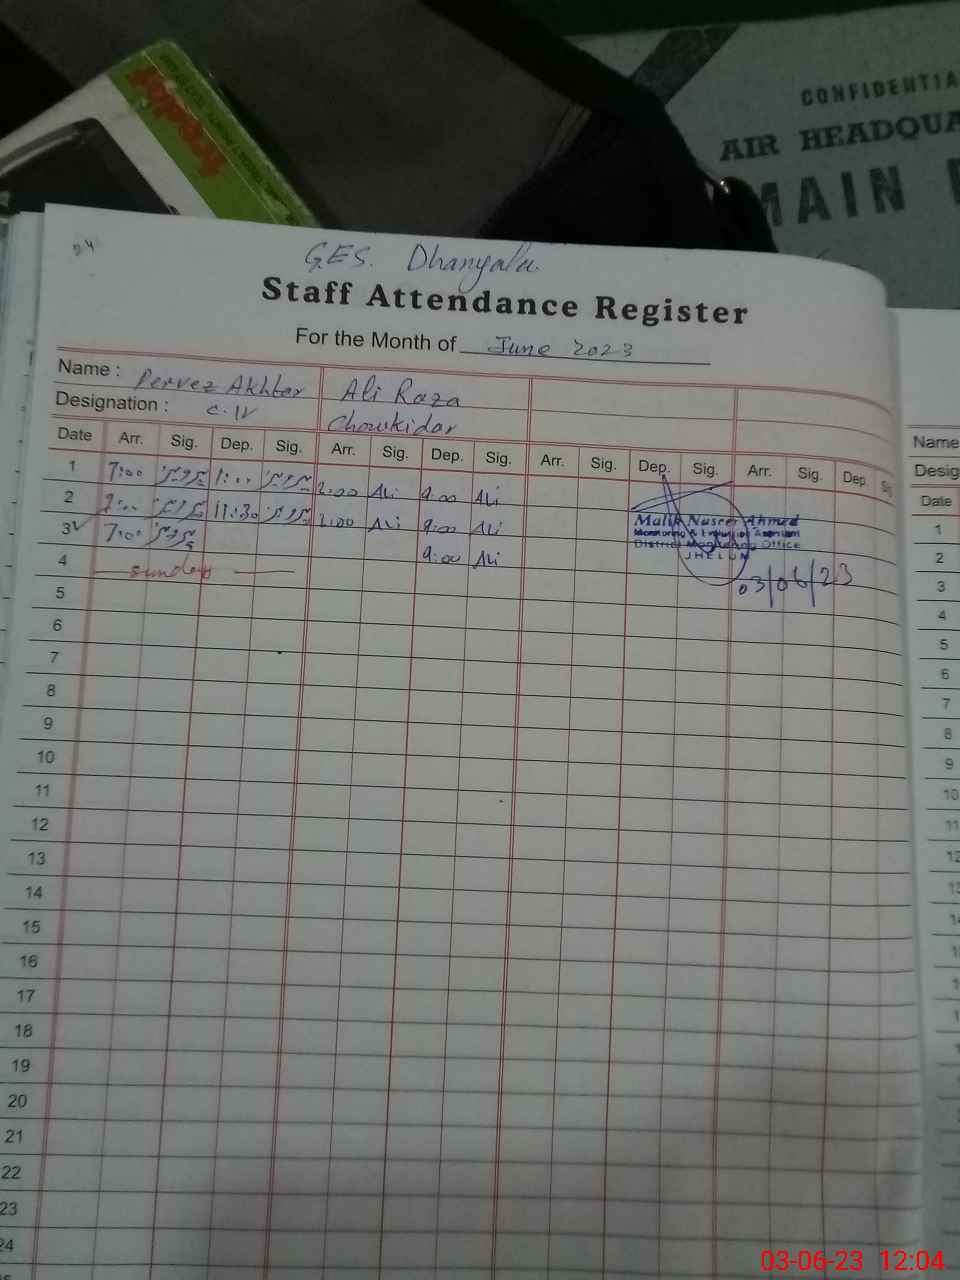 CONFIDENTIA
AIR HEADQUA
MAIN
24
GES. Dhanyala.
Staff Attendance Register
For the Month of June 2023
Name : Pervez Akhter Ali Raza
Designation : C.IV Chowkidar
Date Arr. Sig. Dep. Sig. Arr. Sig. Dep. Sig. Arr. Sig. Dep. Sig. Arr. Sig. Dep. Sig
1 7:00 پرویز 1:00 پرویز 2:00 Ali 9:00 Ali
2 پرویز 11:30 پرویز 2:00 Ali 9:00 Ali
3 7:00 پرویز 9:00 Ali
4 sunday
Malik Naseer Ahmed
Monitoring & Evaluation Assistant
District Monitoring Office
JHELUM
03/06/23
5
6
7
8
9
10
11
12
13
14
15
16
17
18
19
20
21
22
23
24
Name
Desig
Date
1
2
3
4
5
6
7
8
9
10
11
12
13
03-06-23 12:04